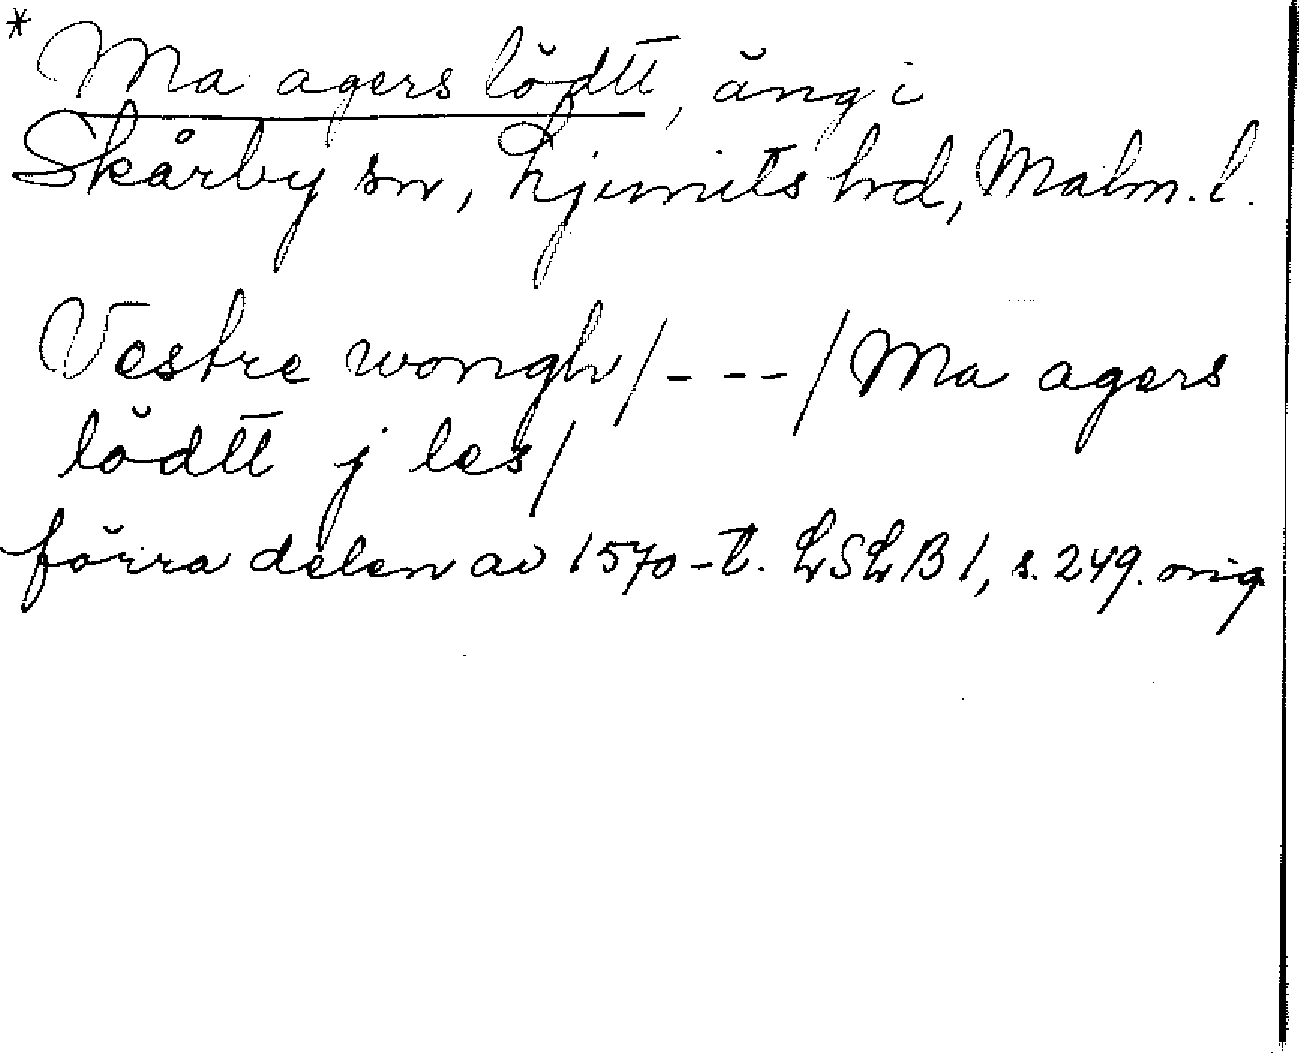 * Ma agers lödtt, äng i
Skårby sn, Ljunits hrd, Malm. l.
Vestre wongh/---/Ma agers
lödtt j les/
förra delen av 1570-t. LSLB 1, s. 249. orig